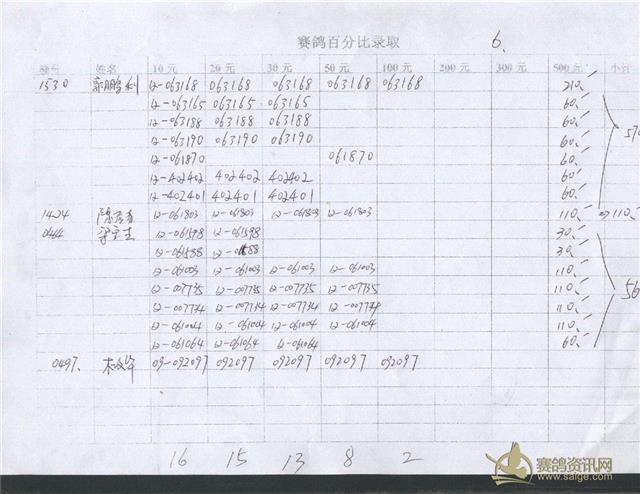 赛鸽百分比录取 6.
棚号 姓名 10元 20元 30元 50元 100元 200元 300元 500元 小计
1530 郭鹏利 12-063168 063168 063168 063168 063168 210.
12-063165 063165 063165 60.
12-063188 063188 063188 60.
12-063190 063190 063190 60.
12-061870 061870 60.
12-402402 402402 402402 60.
12-402401 402401 402401 60.
1424 12-061803 12-061803 12-061803 12-061803 110. 110.
0464 12-061598 12-061598 30.
12-061588 12-061588 30.
12-061003 12-061003 12-061003 12-061003 110.
12-007735 12-007735 12-007735 12-007735 110.
12-007734 12-007734 12-007734 12-007734 110.
12-061004 12-061004 12-061004 12-061004 110.
12-061064 12-061064 12-061064 60.
0497. 09-092097 092097 092097 092097 092097
16 15 13 8 2
赛鸽资讯网
www.saige.com